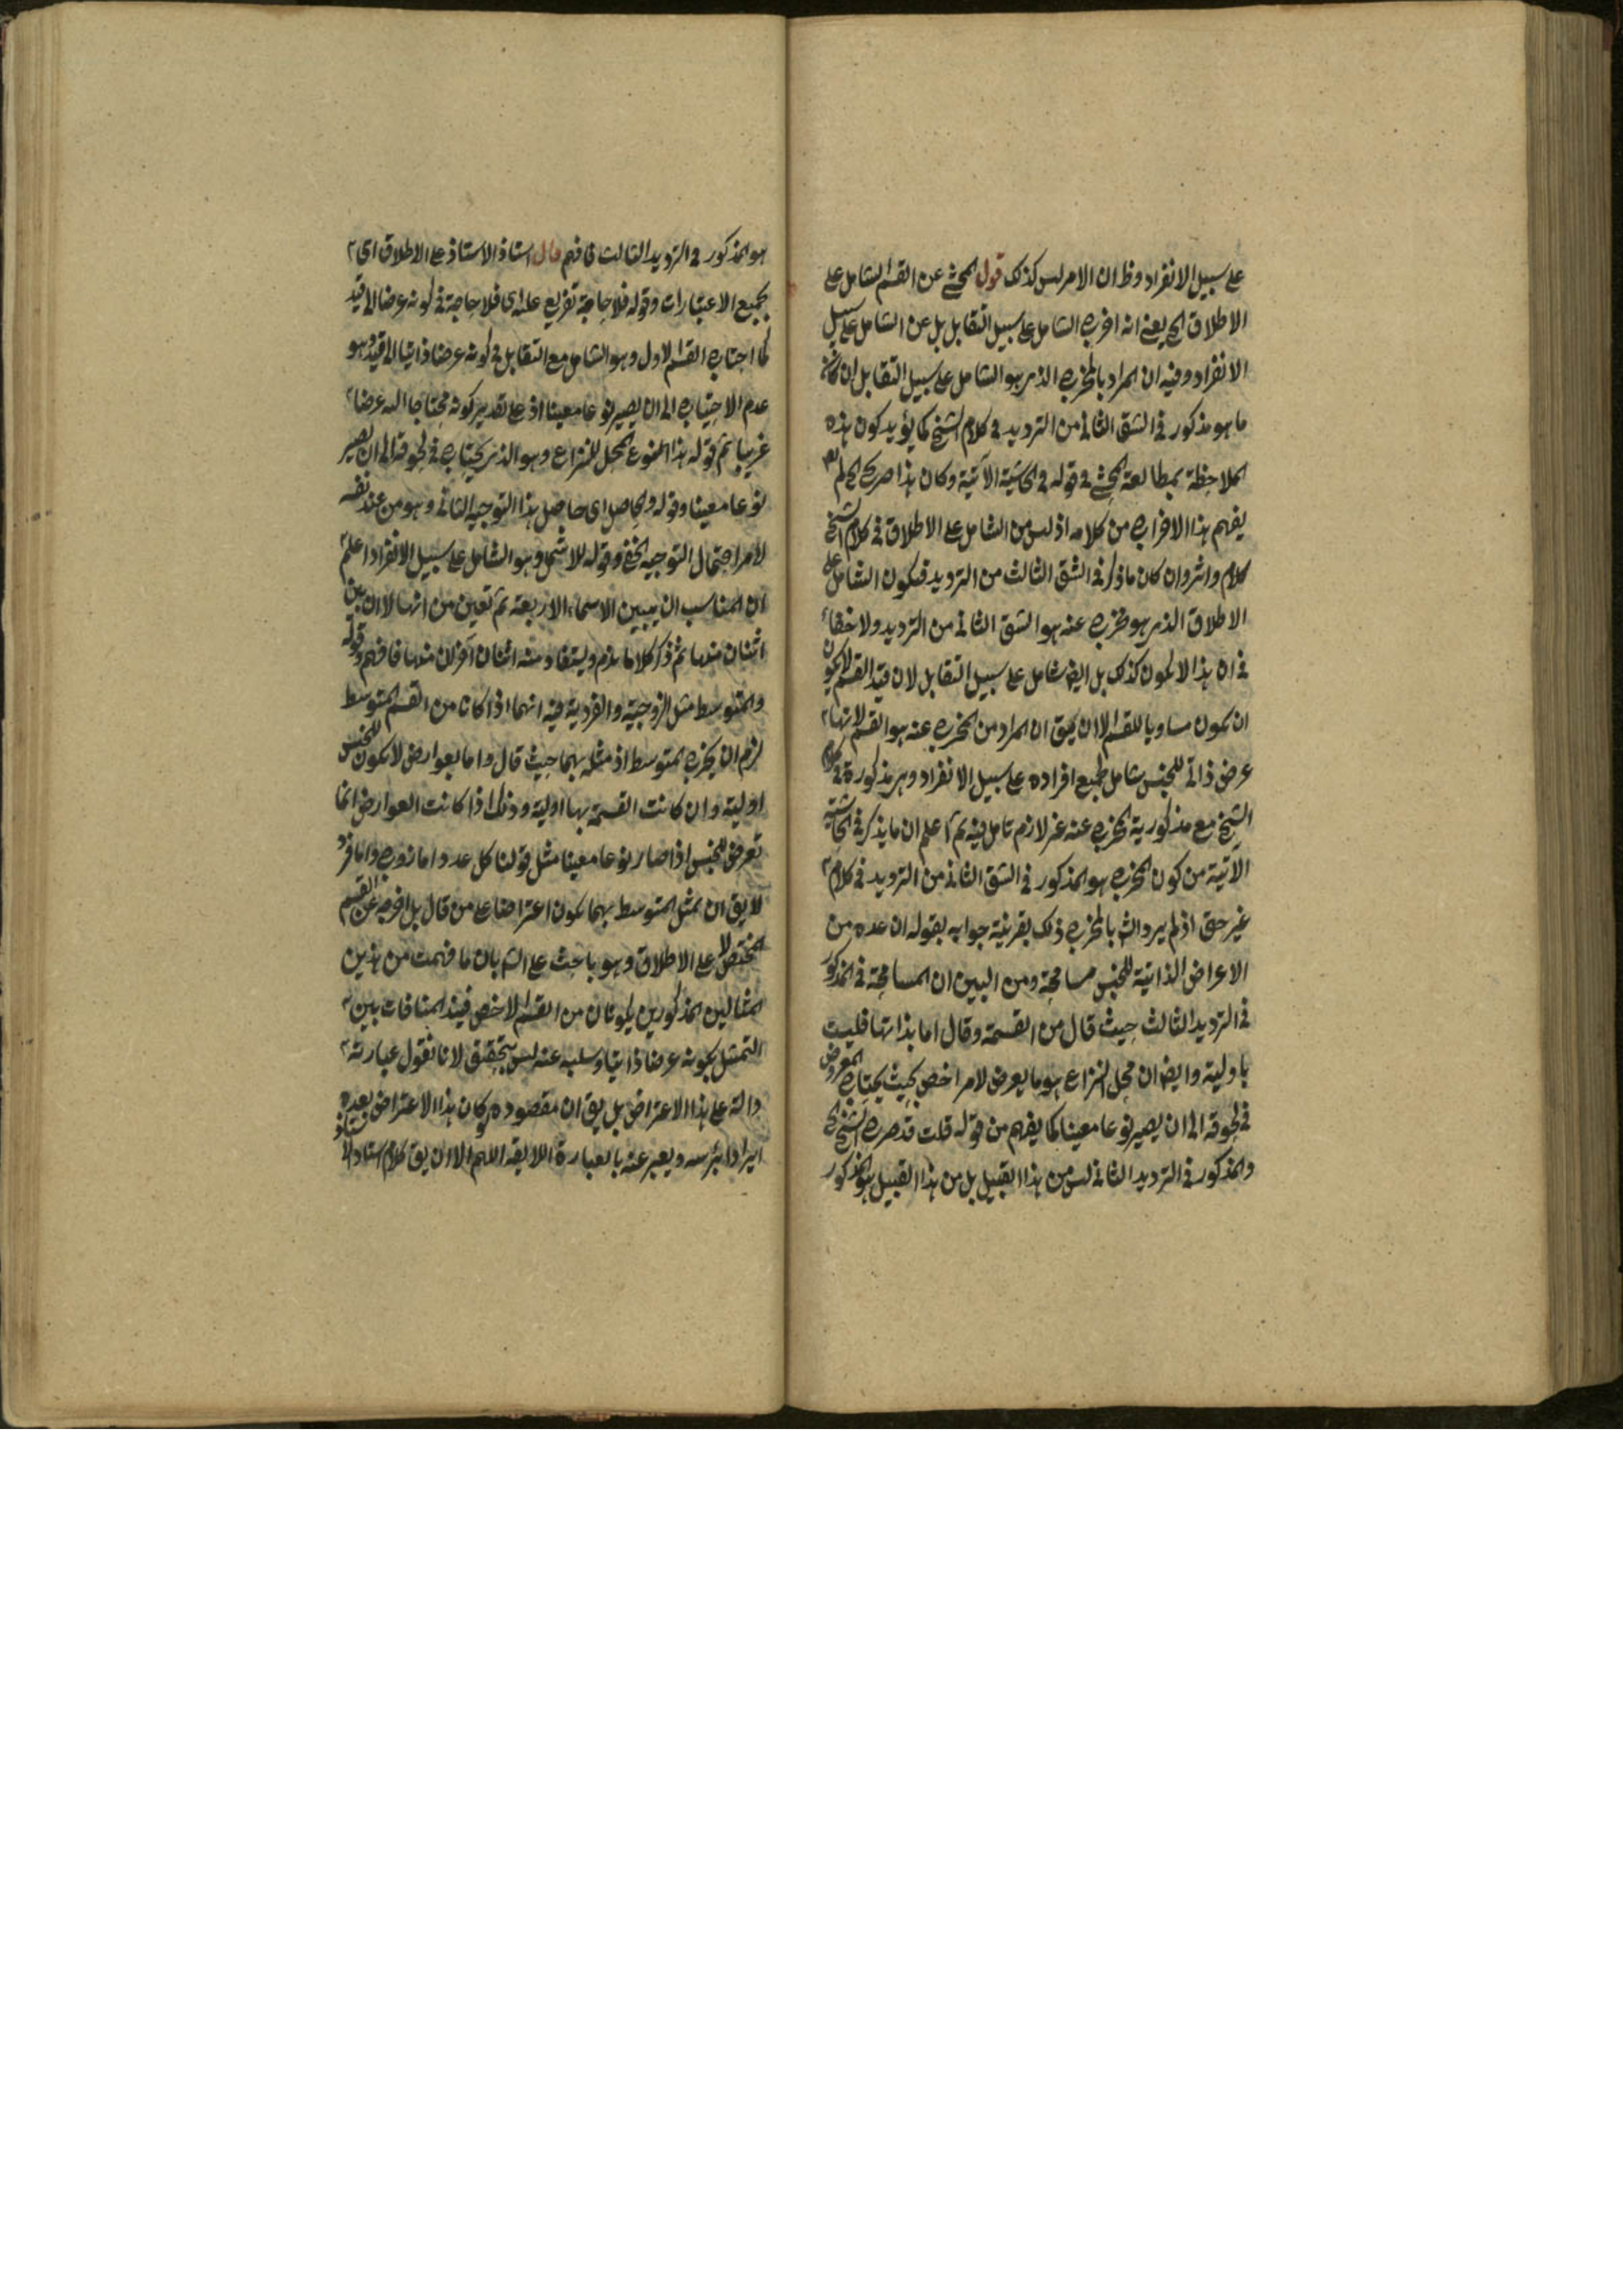 على سبيل الانفراد وظ ان الامر ليس كذلك قول المحشى عن القسم الشامل على
الاطلاق الخ يعنى انه اخرج الشامل على سبيل التقابل بل عن الشامل على سبيل
الانفراد وفيه ان المراد بالمخرج الذى هو الشامل على سبيل التقابل ان كان
ما هو مذكور فى الشق الثانى من الترديد فى كلام الشيخ كما يؤيد كون هذه
الملاحظة بمطالعة المحشى فى قوله فى الحاشية الآتية وكان هذا صرح لم
يفهم هذا الاخراج من كلامه اذ ليس من الشامل على الاطلاق فى كلام الشيخ
كلام واثر وان كان ما ذكر فى الشق الثالث من الترديد فيكون الشامل على
الاطلاق الذى هو مخرج عنه هو الشق الثانى من الترديد ولا خفاء
فى ان هذا لا يكون كذلك بل ايض شامل على سبيل التقابل لان قيد القسم لا يجوز
ان يكون مساويا للقسم الا ان يق ان المراد من المخرج عنه هو القسم لانها
عرض ذاتى للجنس شامل لجميع افراده على سبيل الانفراد وهى مذكورة فى كلام
الشيخ مع مذكورية المخرج عنه غير لازم تامل فيه ثم اعلم ان ما يذكر فى الحاشية
الآتية من كون المخرج هو المذكور فى الشق الثانى من الترديد فى كلام
غير حق اذ لم يرد الش بالمخرج ذلك بقرينة جوابه بقوله ان عده من
الاعراض الذاتية للجنس مسامحة ومن البين ان المسامحة فى المذكور
فى الترديد الثالث حيث قال من القسمة وقال اما بذاتها فليست
باولية وايض ان محل النزاع هو ما يعرض لامر اخص بحيث يحتاج المعروض
فى لحوقه الى ان يصير نوعا معينا كما يفهم من قوله قلت قد صرح الشيخ الخ
والمذكور فى الترديد الثانى ليس من هذا القبيل بل من هذا القبيل هو المذكور
هو المذكور فى الترديد الثالث فافهم قال استاذ الاستاذ على الاطلاق اى
بجميع الاعتبارات وقوله فلا حاجة تفريع عليه اى فلا حاجة فى كونه عرضا الى قيد
كما احتاج القسم الاول وهو الشامل مع التقابل فى كونه عرضا ذاتيا الى قيد وهو
عدم الاحتياج الى ان يصير نوعا معينا اذ على تقدير كونه محتاجا اليه عرضا
غريبا ثم قوله هذا النوع المحل للنزاع وهو الذى يحتاج فى لحوقه الى ان يصير
نوعا معينا وقوله والحاصل اى حاصل هذا التوجيه الثانى وهو من عند نفسه
لامر احتمال التوجيه الخفى وقوله للاشمل وهو الشامل على سبيل الانفراد اعلم
ان المناسب ان يبين الاسماء الاربعة ثم تعين من انها لا ان بين
اثنان منها ثم ذكر كلاما يلزم ويستفاد منه اثنان آخران منها فافهم وقوله
والمتوسط مثل الزوجية والفردية فيه انهما اذا كانا من القسم المتوسط
لزم ان يخرج المتوسط اذ مثله بهما حيث قال واما بعوارض لا يكون للجنس
اولية وان كانت القسمة بها اولية وذلك اذا كانت العوارض انما
تعرض للجنس اذا صار نوعا معينا مثل قولنا كل عدد اما زوج واما فرد
لا يق ان تمثل المتوسط بهما يكون اعتراضا على من قال بل اخرج عن القسم
المختص لا على الاطلاق وهو باحث على الش بان ما فهمت من هذين
المثالين المذكورين يكونان من القسم الاخص فيفيد المنافات بين
التمثل بكونه عرضا ذاتيا وسلبه عنه ليس بتحقيق لانا نقول عبارته
دالة على هذا الاعتراض بل يق ان مقصوده لو كان هذا الاعتراض بعده
ايرادا برأسه ويعبر عنه بالعبارة اللايقة اللهم الا ان يق كلام استاد الاستاذ